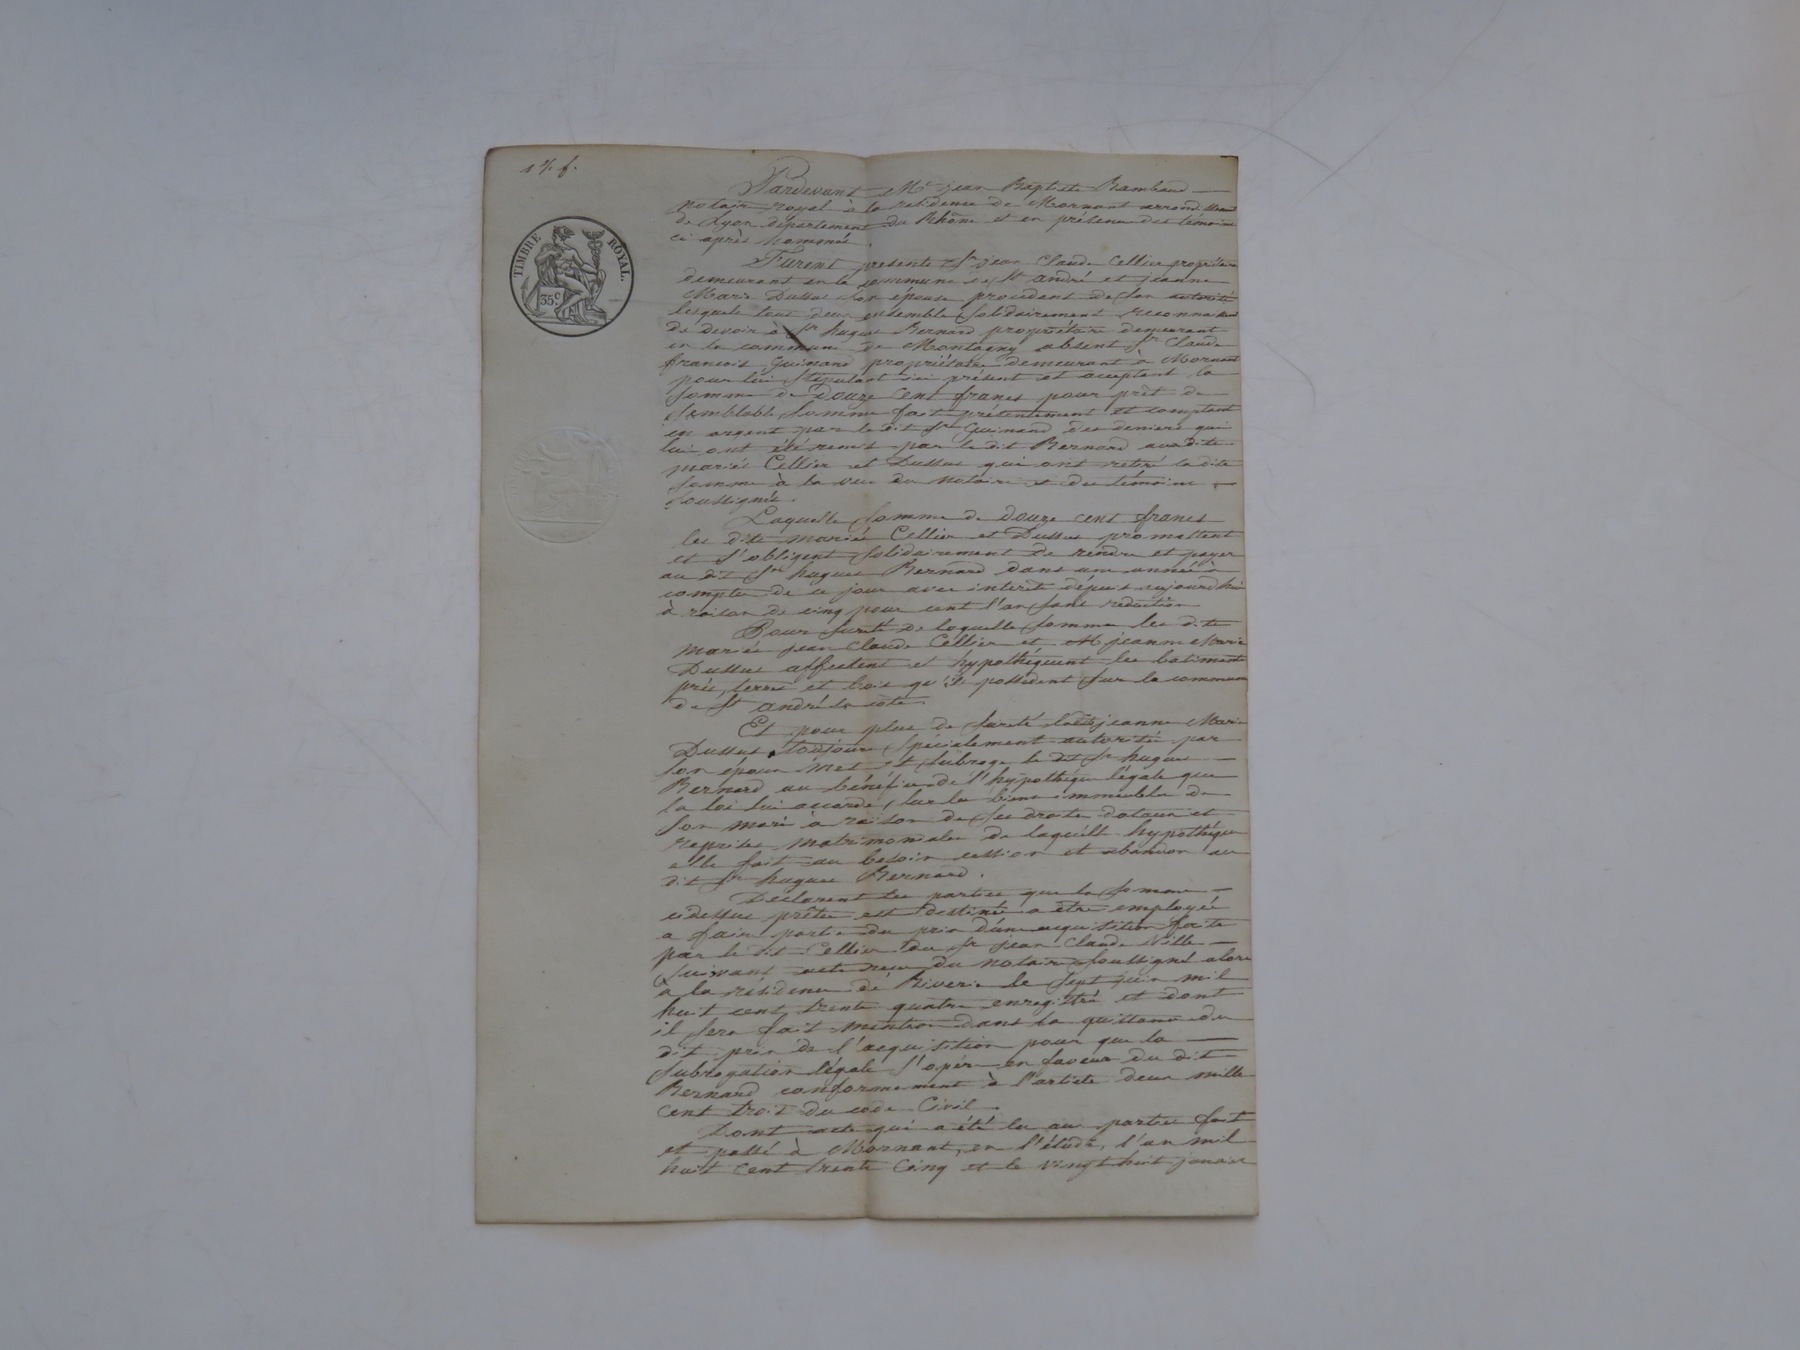 1re f.
TIMBRE ROYAL.
35c
Pardevant Me jean Baptiste Rambaud
notaire royal à la residence de Mornant arrondissement
de Lyon département du Rhône et en présence des témoins
ci après nommés.
Furent présents Sr jean Claude Cellier propriétaire
demeurant en la commune de St andré et jeanne
Marie Dussuc son épouse procédant de son autorité
lesquels tout deux ensemble solidairement reconnaissent
de devoir à Sr hugues Bernard propriétaire demeurant
en la commune de Montagny absent Sr Claude
francois Guinand propriétaire demeurant à Mornant
pour lui stipulant ici présent et aceptant la
somme de Douze cent francs pour prêt de
semblable somme fait présentement et comptant
en argent par le dit Sr Guinand des deniers qui
lui ont été remis par le dit Bernard aux dits
mariés Cellier et Dussuc qui ont retiré la dite
somme à la vue du notaire et des témoins
soussignés.
Laquelle somme de douze cent francs
les dits mariés Cellier et Dussuc promettent
et s'obligent solidairement de rendre et payer
au dit Sr hugues Bernard dans une année à
compter de ce jour avec interets dépuis aujourd'hui
à raison de cinq pour cent l'an sans reduction
Pour sureté de laquelle somme les dits
mariés jean Claude Cellier et jeanne Marie
Dussuc affectent et hypothéquent les batiments
prés, terres et bois qu'ils possèdent sur la commune
de St andré la cote.
Et pour plus de sureté ladite jeanne Marie
Dussuc toujours spécialement autorisée par
son époux met et subroge le dit Sr hugues
Bernard au bénéfice de l'hypothéque légale que
la loi lui accorde sur les biens immeubles de
son mari à raison de ses droits dotaux et
reprises matrimoniales de laquelle hypothéque
elle fait au besoin cession et abandon au
dit Sr hugues Bernard.
Declarent les parties que la somme
cidessus prêtée est destinée a être employée
a faire partie du prix d'une acquisition faite
par le dit Cellier du Sr jean Claude Ville
suivant acte reçu du notaire soussigné alors
à la résidence de Riverie le sept juin mil
huit cent trente quatre enregistré et dont
il sera fait mention dans la quittance du
dit prix de l'acquisition pour que la
subrogation légale s'opère en faveur du dit
Bernard conformement à l'article deux mille
cent trois du code Civil.
Dont acte qui a été lu aux parties fait
et passé à Mornant, en l'étude, l'an mil
huit cent trente cinq et le vingt huit janvier